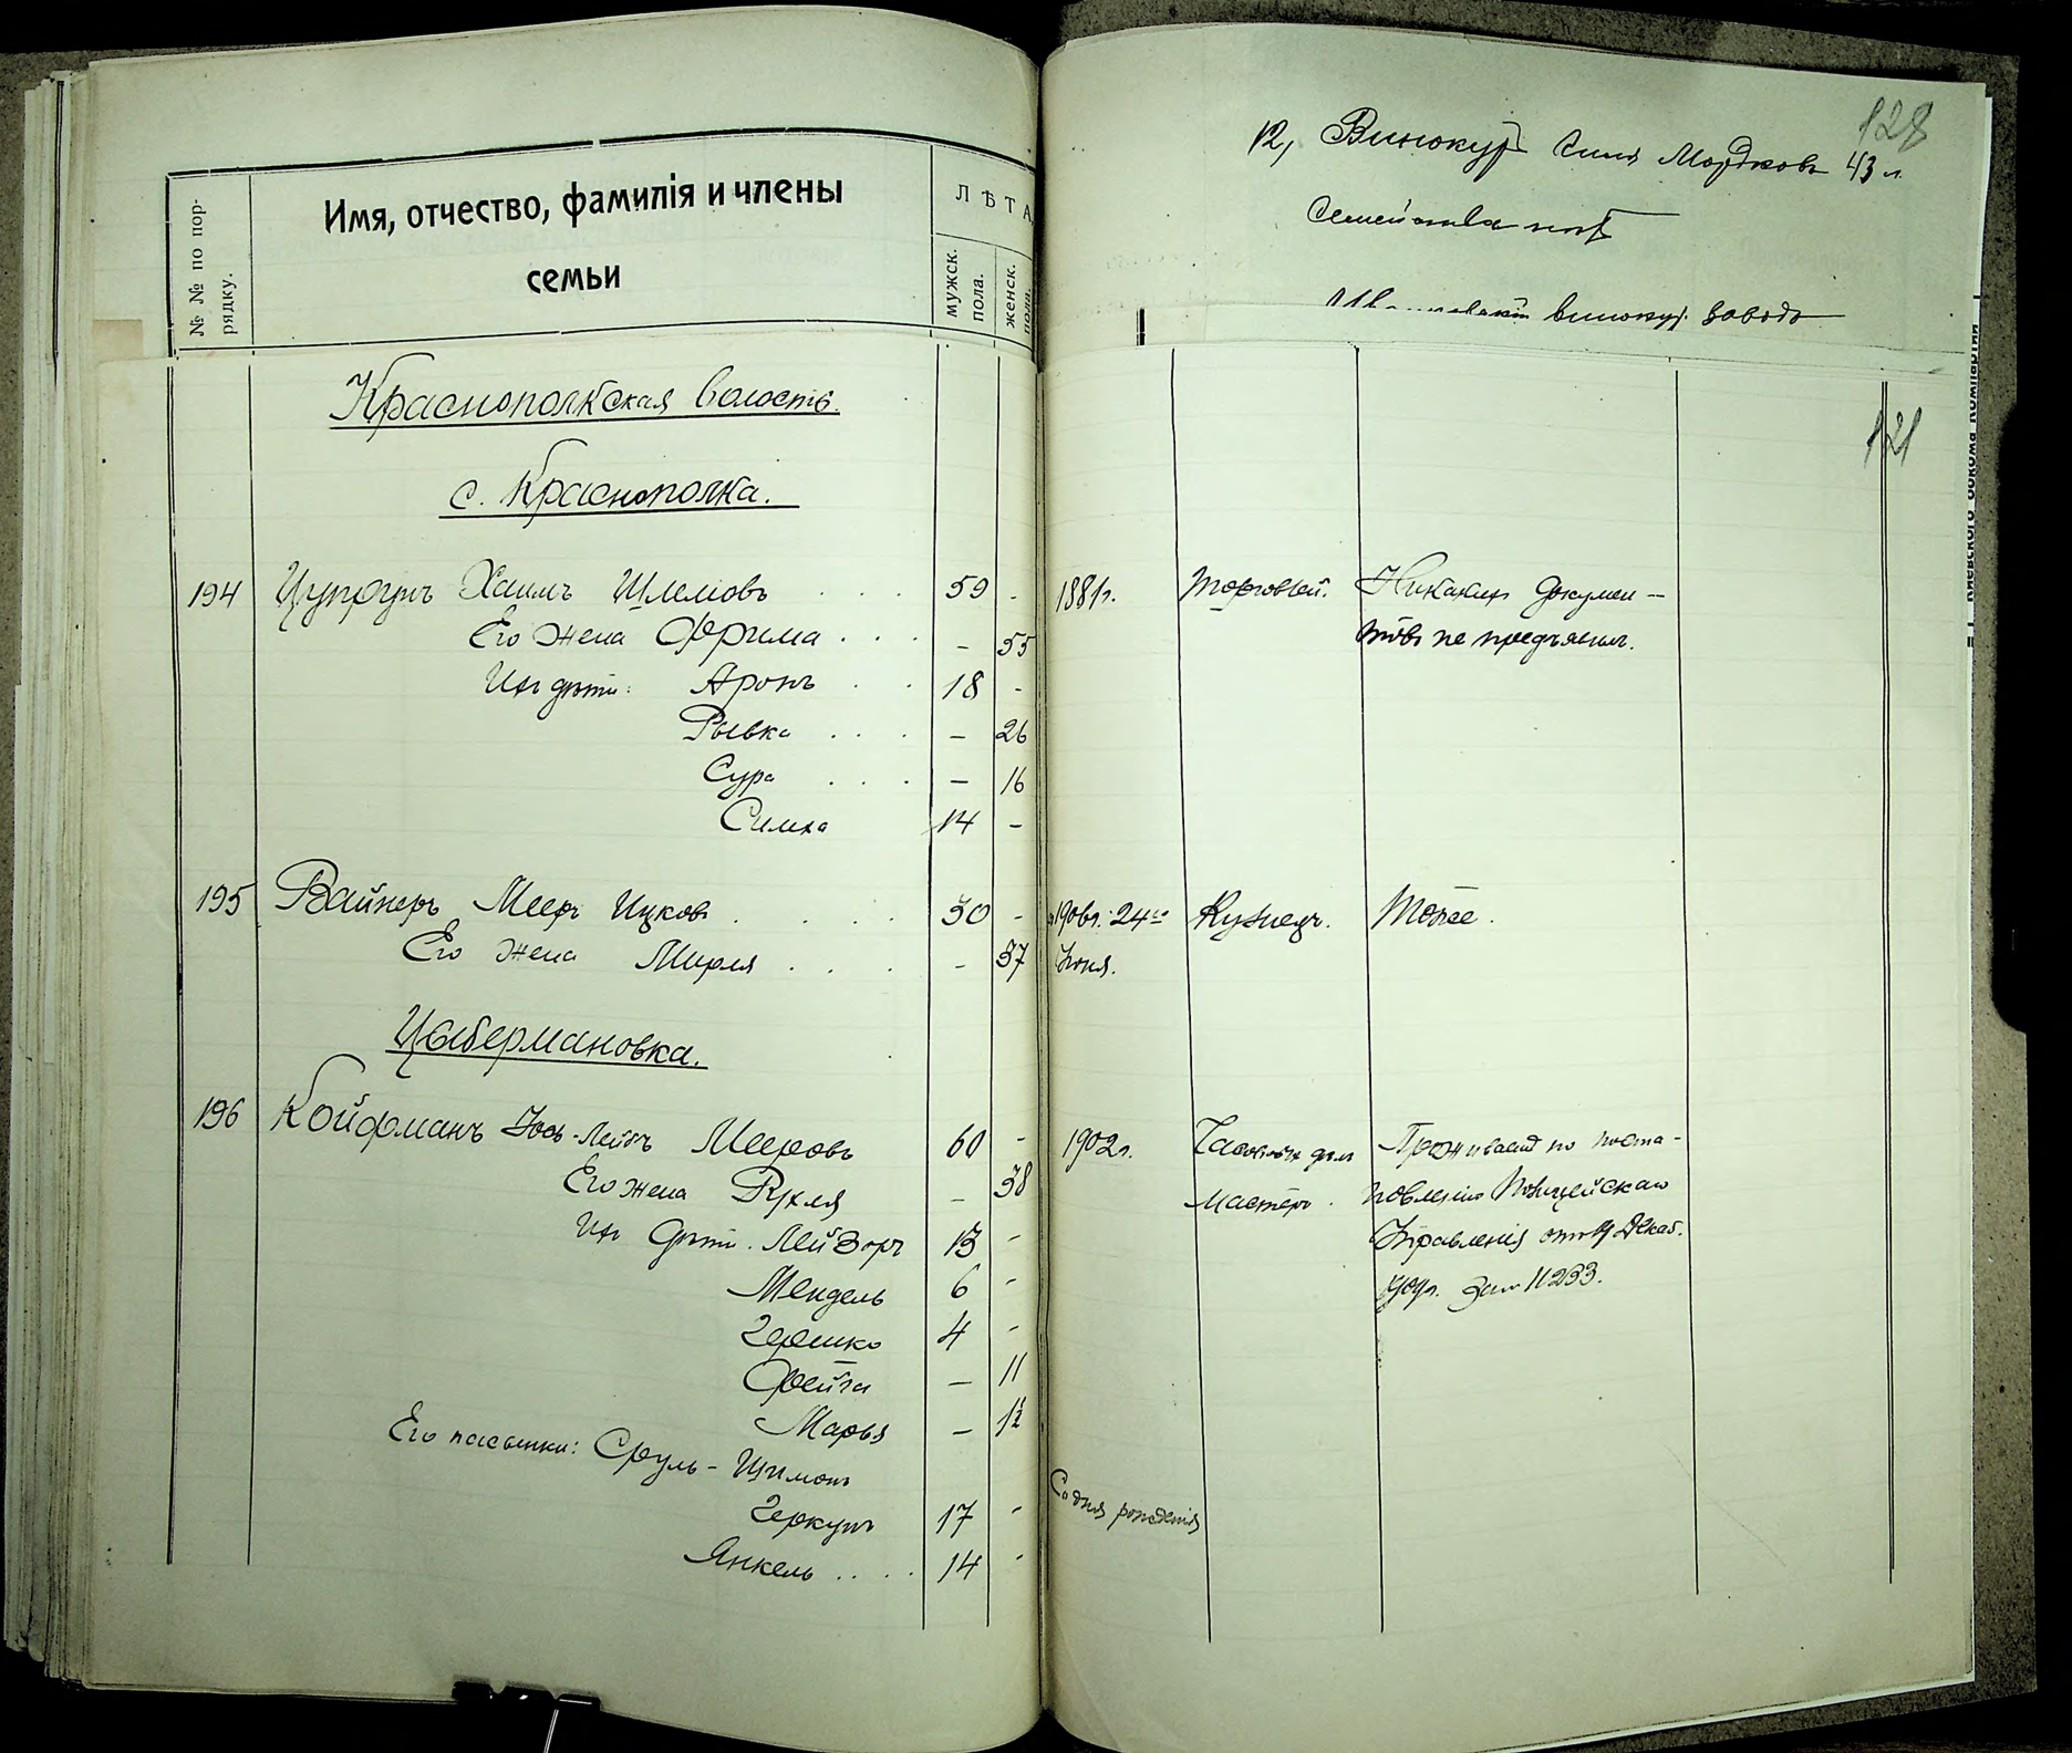 № № по пор-
рядку.
Имя, отчество, фамилія и члены
семьи
ЛѢТА
мужск.
пола.
женск.
пола.
Краснополкская волость.
с. Краснополка.
194 Хаимъ Шлемовъ . . . 59 -
Его жена Фрима . . . - 55
Ихъ дѣти: Аронъ . . 18 -
Рывка . . . - 26
Сура . . . - 16
Симха 14 -
195 Вайнеръ Мееръ Ицковъ . . . . -
Его жена Мирля . . . - 37
Цыбермановка.
196 Койфманъ Іось-Лейбъ Мееровъ 60 -
Его жена Рухля - 38
Ихъ дѣти. Лейзоръ 13 -
Мендель 6 -
Гершко 4 -
Фейга - 11
Марья -
Его пасынки: Сруль-Шимонъ
17 -
Янкель . . . . 14 -
128
12, Винокуръ Мордковъ 43 л.
Семейства нѣтъ
винокур. заводъ
121
1881г. торговлей. Никакихъ докумен-
товъ не предъявилъ.
1906г. 24го Кузнецъ. Тоже.
Іюня.
1902г. Часовыхъ дѣлъ Проживаетъ по поста-
мастеръ. новленію Полицейскаго
Управленія отъ Декаб.
за № 11233.
Со дня рожденія